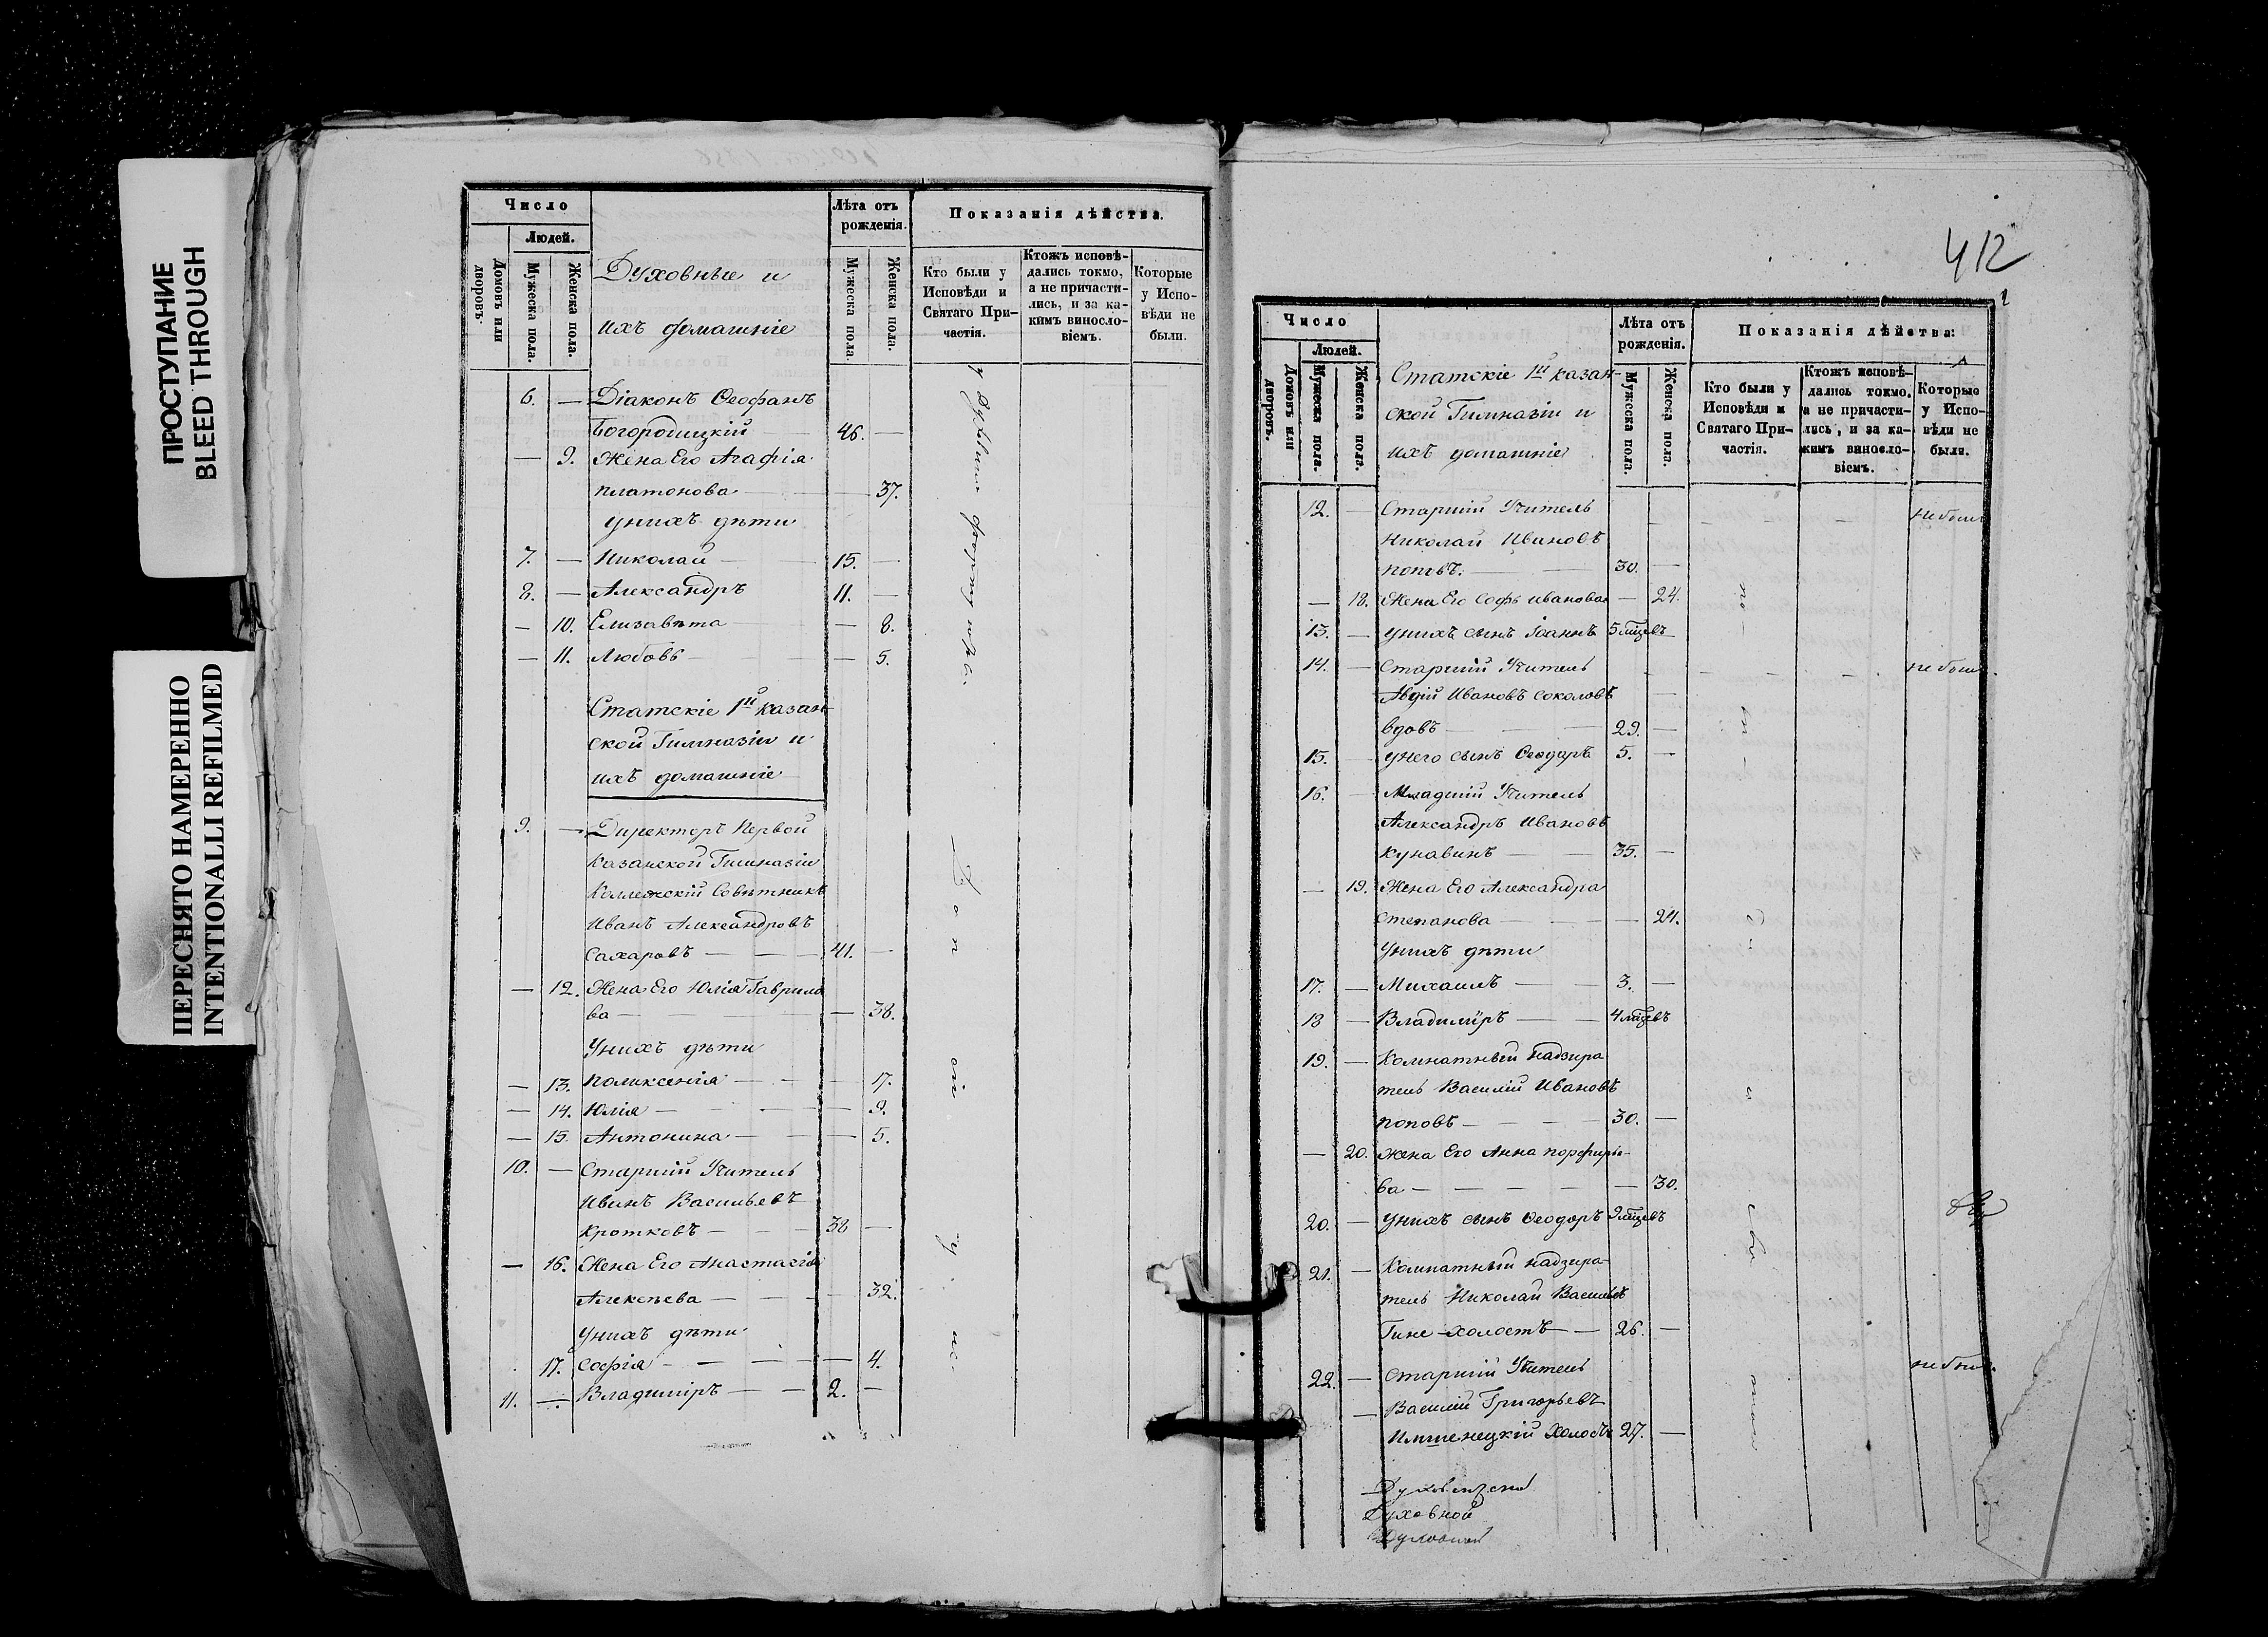 ПРОСТУПАНИЕ
BLEED THROUGH
ПЕРЕСНЯТО НАМЕРЕННО
INTENTIONALLI REFILMED
Число
Людей.
Домовъ или дворовъ.
Мужеска пола.
Женска пола.
Духовные и
ихъ домашніе
Лѣта отъ
рожденія.
Мужеска пола.
Женска пола.
Показанія дѣйства.
Кто были у
Исповѣди и
Святаго При-
частія.
Ктожъ исповѣ-
дались токмо,
а не причасти-
лись, и за ка-
кимъ винословіемъ.
Которые
у Испо-
вѣди не
были.
6. — Діаконъ Ѳеофанъ
Богородицкій — 46. —
— 9. Жена Его Агафія
Платонова — — 37.
Унихъ дѣти
7. — Николай — 15. —
8. — Александръ 11. —
— 10. Елизавѣта — — 8.
— 11. Любовь — — 5.
Статскіе 1й казан-
ской Гимназіи и
ихъ домашніе
9. — Директоръ Первой
Казанской Гимназіи
Коллежскій Совѣтникъ
Иванъ Александровъ
Сахаровъ — — — 41. —
— 12. Жена Его Юлія Гаврило
ва — — 38.
Унихъ дѣти
— 13. Поликсенія — — — 17.
— 14. Юлія — — — 9.
— 15. Антонина — — — 5.
10. — Старшій Учитель
Иванъ Васильевъ
Кротковъ — — — 38 —
— 16. Жена Его Анастасія
Алексѣева — — — 32.
Унихъ дѣти
17. Софія — — — — 4.
11. — Владиміръ — — 2. —
412
Число
Людей.
Домовъ или дворовъ.
Мужеска пола.
Женска пола.
Статскіе 1й казан-
ской Гимназіи и
ихъ домашніе
Лѣта отъ
рожденія.
Мужеска пола.
Женска пола.
Показанія дѣйства:
Кто были у
Исповѣди и
Святаго При-
частія.
Ктожъ исповѣ-
дались токмо,
а не причасти-
лись, и за ка-
кимъ виносло-
віемъ.
Которые
у Испо-
вѣди не
были.
12. — Старшій Учитель
Николай Ивановъ
Поповъ. — — 30. —
— 18. Жена Его Софья Иванова — 24.
13. — Унихъ сынъ Іоаннъ 5 мѣцевъ
14. — Старшій Учитель
Авдій Ивановъ Соколовъ
вдовъ — — 29. —
15. Унего сынъ Ѳеодоръ 5. —
16. Младшій Учитель
Александръ Ивановъ
Кунавинъ — — 35. —
— 19. Жена Его Александра
Степанова — — — 24.
Унихъ дѣти
17. — Михаилъ — — 3. —
18 — Владиміръ — — 4 мѣцевъ
19. — Комнатный Надзира
тель Василій Ивановъ
Поповъ — — — 30. —
— 20. Жена Его Анна Порфирье-
ва — — — — — 30.
20. — Унихъ сынъ Ѳеодоръ 9 мѣцевъ
21. — Комнатный надзира-
тель Николай Васильевъ
Гине — холостъ — 26. —
22. — Старшій Учитель
Василій Григорьевъ
Имшенецкій Холостъ 27. —
Духовной